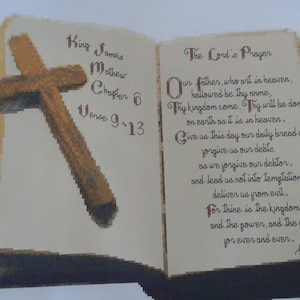 King James
Mathew
Chapter 6
Verse 9-13
The Lord's Prayer
Our father, who art in heaven,
hallowed be thy name,
Thy kingdom come, Thy will be done
on earth as it is in heaven.
Give us this day our daily bread
forgive us our debts,
as we forgive our debtor.
and lead us not into temptation
deliver us from evil.
For thine is the kingdom
and the power, and the
for ever and ever.